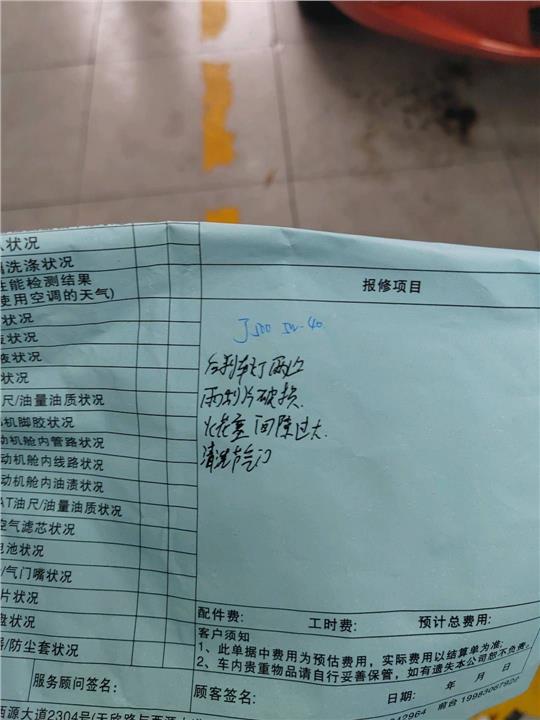 状况
洗涤状况
性能检测结果
使用空调的天气)
状况
状况
液状况
状况
尺/油量油质状况
机脚胶状况
动机舱内管路状况
动机舱内线路状况
动机舱内油渍状况
AT油尺/油量油质状况
空气滤芯状况
电池状况
/气门嘴状况
片状况
盘状况
/防尘套状况
报修项目
J500 5w-40
右刹车灯
雨刮片破损
火花塞间隙过大
清洗节气门
配件费: 工时费: 预计总费用:
客户须知
1、此单据中费用为预估费用，实际费用以结算单为准;
2、车内贵重物品请自行妥善保管，如有遗失本公司恕不负责。
服务顾问签名: 顾客签名: 日期: 年 月 日
西源大道2304号(天欣路与西源大道
42964 前台